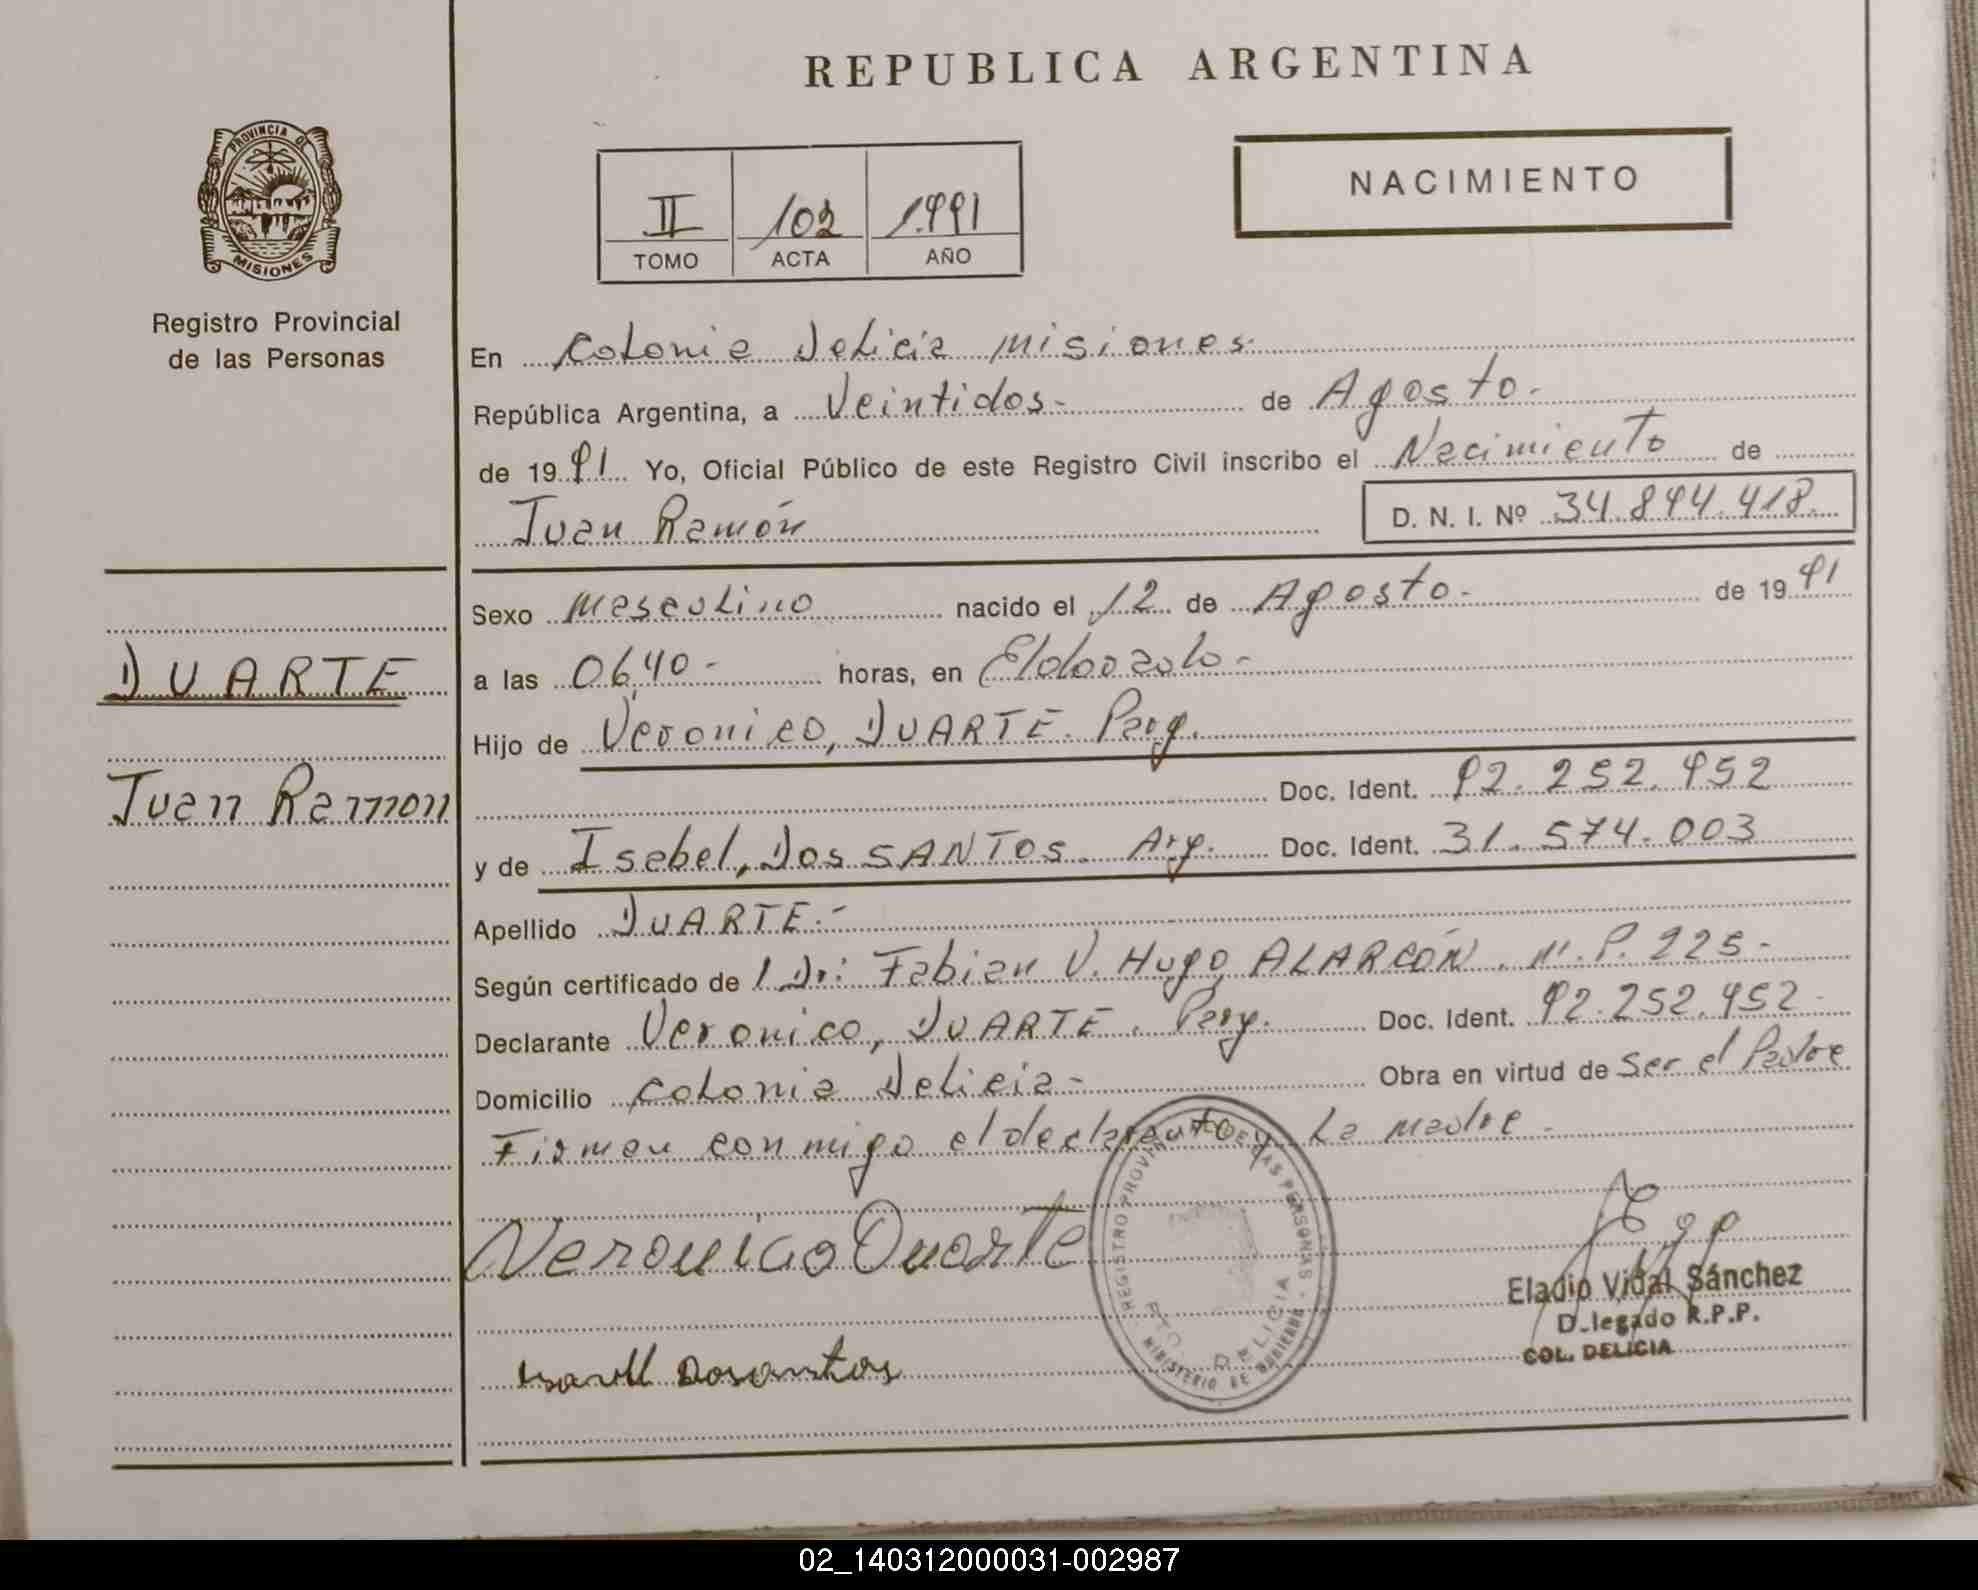 REPUBLICA ARGENTINA
PROVINCIA DE
MISIONES
Registro Provincial
de las Personas
II 102 1.991
TOMO ACTA AÑO
NACIMIENTO
En Colonia Delicia Misiones
República Argentina, a Veintidos- de Agosto.-
de 19 91 Yo, Oficial Público de este Registro Civil inscribo el Nacimiento de
Juan Ramón D. N. I. Nº 34.894.418.
Sexo Masculino nacido el 12 de Agosto.- de 19 91
DUARTE
a las 06,40- horas, en Eldorado-
Hijo de Veronico, DUARTE. Parg.
Juan Ramon
Doc. Ident. 92.252.952
y de Isabel, Dos SANTOS. Arg. Doc. Ident. 31.574.003
Apellido DUARTE.-
Según certificado de Dr: Fabian V. Hugo ALARCÓN. M.P. 225-
Declarante Veronico, DUARTE. Parg. Doc. Ident. 92.252.952-
Domicilio Colonia Delicia- Obra en virtud de Ser el Padre
Firman conmigo el declarante y La madre-
REGISTRO PROVINCIAL DE LAS PERSONAS - MINISTERIO DE GOBIERNO
DELICIA
Veronico Duarte
Eladio Vidal Sánchez
D_legado R.P.P.
COL. DELICIA
Dosantos
02_140312000031-002987